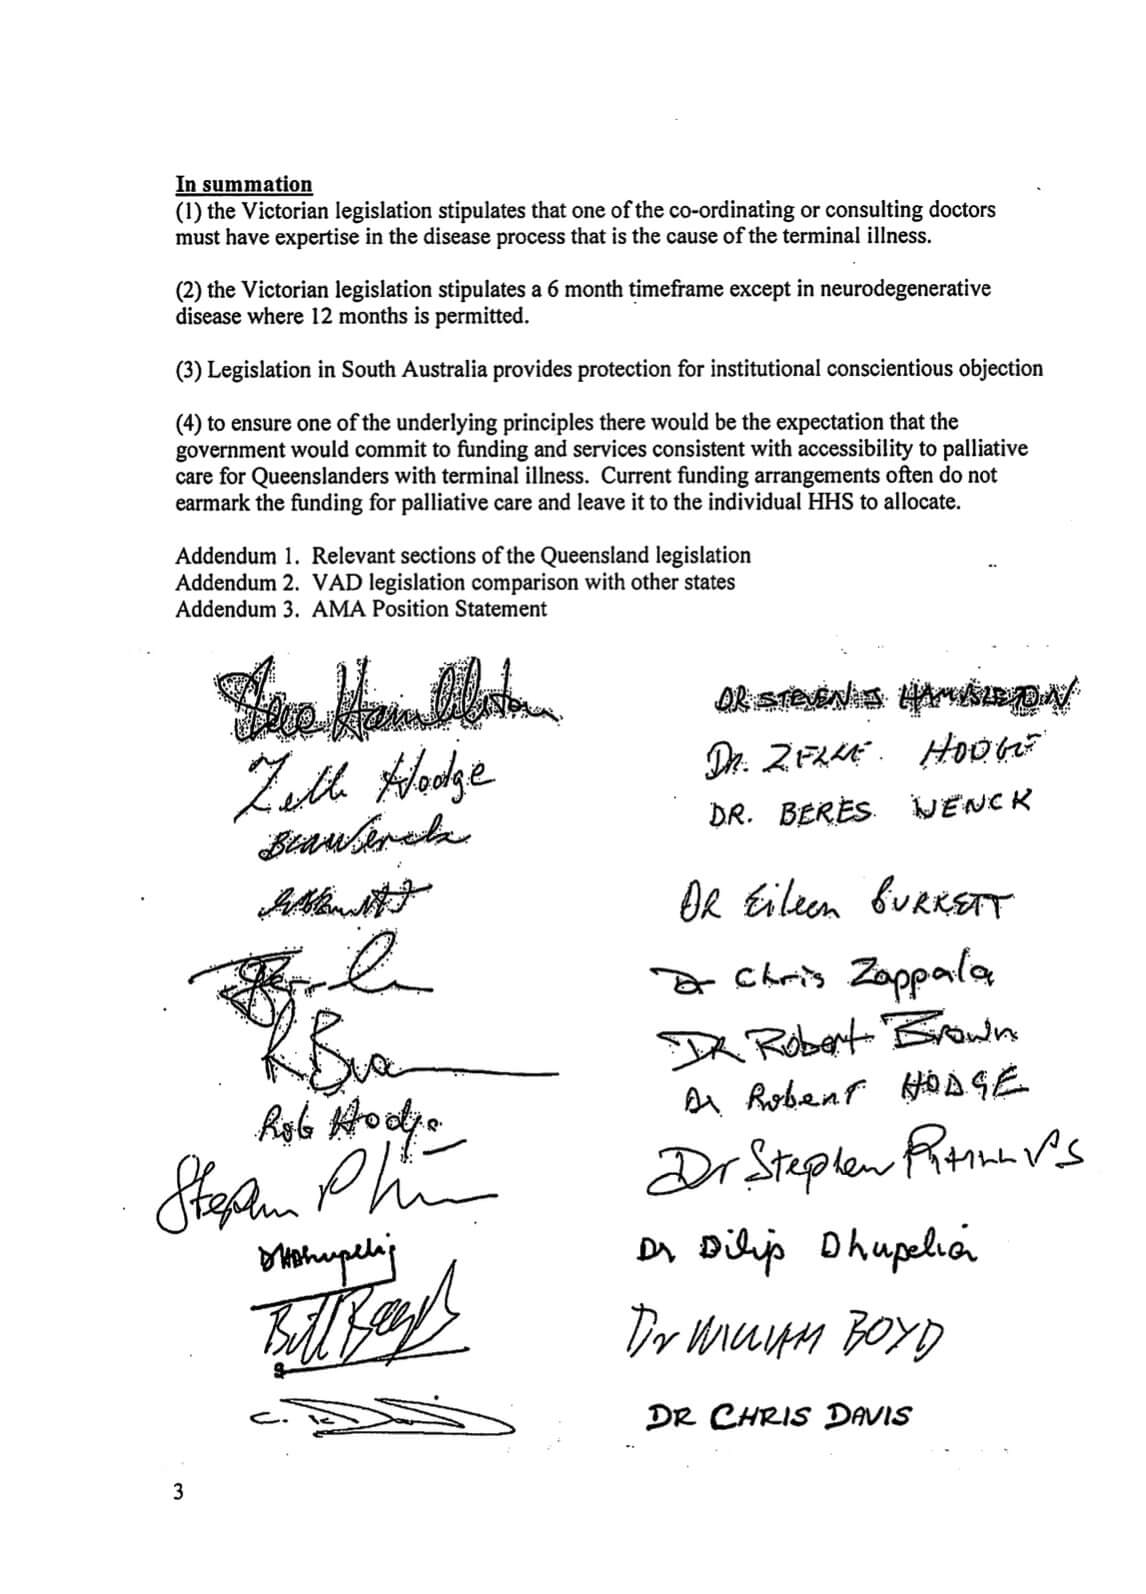 In summation
(1) the Victorian legislation stipulates that one of the co-ordinating or consulting doctors
must have expertise in the disease process that is the cause of the terminal illness.
(2) the Victorian legislation stipulates a 6 month timeframe except in neurodegenerative
disease where 12 months is permitted.
(3) Legislation in South Australia provides protection for institutional conscientious objection
(4) to ensure one of the underlying principles there would be the expectation that the
government would commit to funding and services consistent with accessibility to palliative
care for Queenslanders with terminal illness.  Current funding arrangements often do not
earmark the funding for palliative care and leave it to the individual HHS to allocate.
Addendum 1.  Relevant sections of the Queensland legislation
Addendum 2.  VAD legislation comparison with other states
Addendum 3.  AMA Position Statement
Hambleton DR STEVEN J HAMBLETON
Zelle Hodge DR. ZELLE HODGE
DR. BERES WENCK
DR Eileen BURKETT
Dr Chris Zappala
R Brown DR Robert Brown
Rob Hodge Dr Robert HODGE
Stephen Dr Stephen PHILLIPS
DHDhupelia Dr Dilip Dhupelia
Bill Boyd Dr WILLIAM BOYD
C. Davis DR CHRIS DAVIS
3